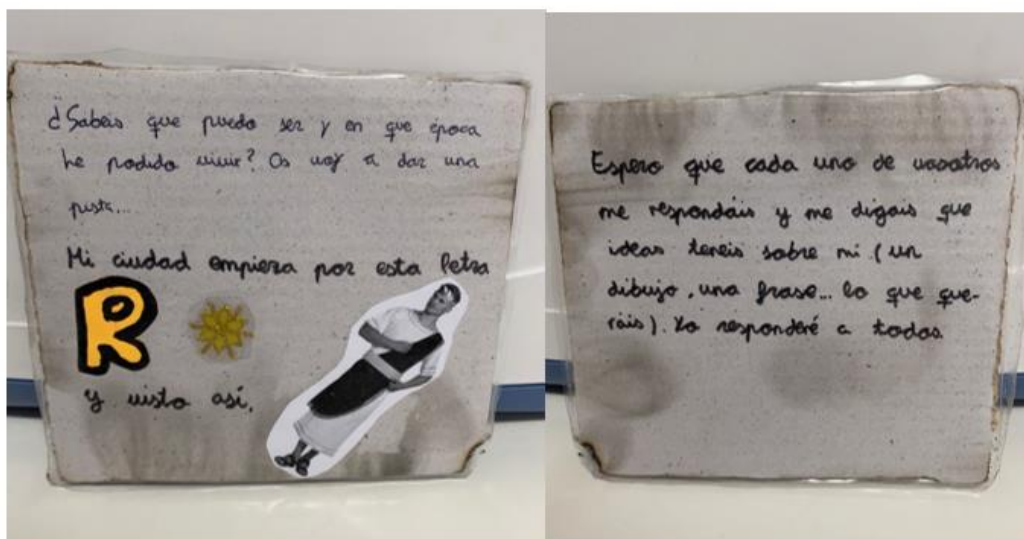 ¿Sabeis que puedo ser y en que época
he podido vivir? Os voy a dar una
pista...
Mi ciudad empieza por esta letra
R
y visto así.
Espero que cada uno de vosotros
me respondáis y me digais que
ideas teneis sobre mi (un
dibujo, una frase... lo que que-
ráis). Yo responderé a todos.